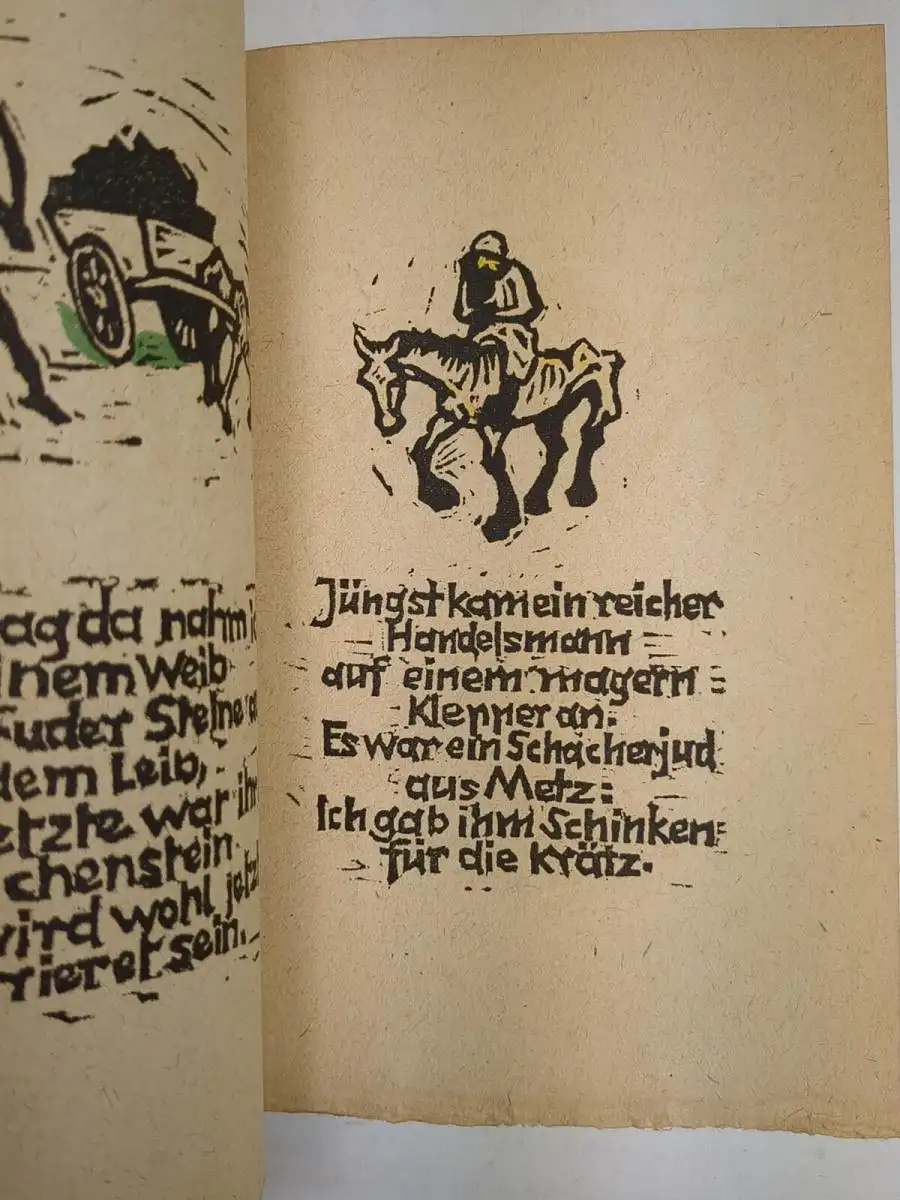 ag da nahm i
inem Weib
Fuder Steine
dem Leib,
etzte war ih
chenstein.
wird wohl jetz
rieret sein.
Jüngst kam ein reicher
Handelsmann
auf einem magern
Klepper an.
Es war ein Schacherjud
aus Metz:
Ich gab ihm Schinken
für die Krätz.